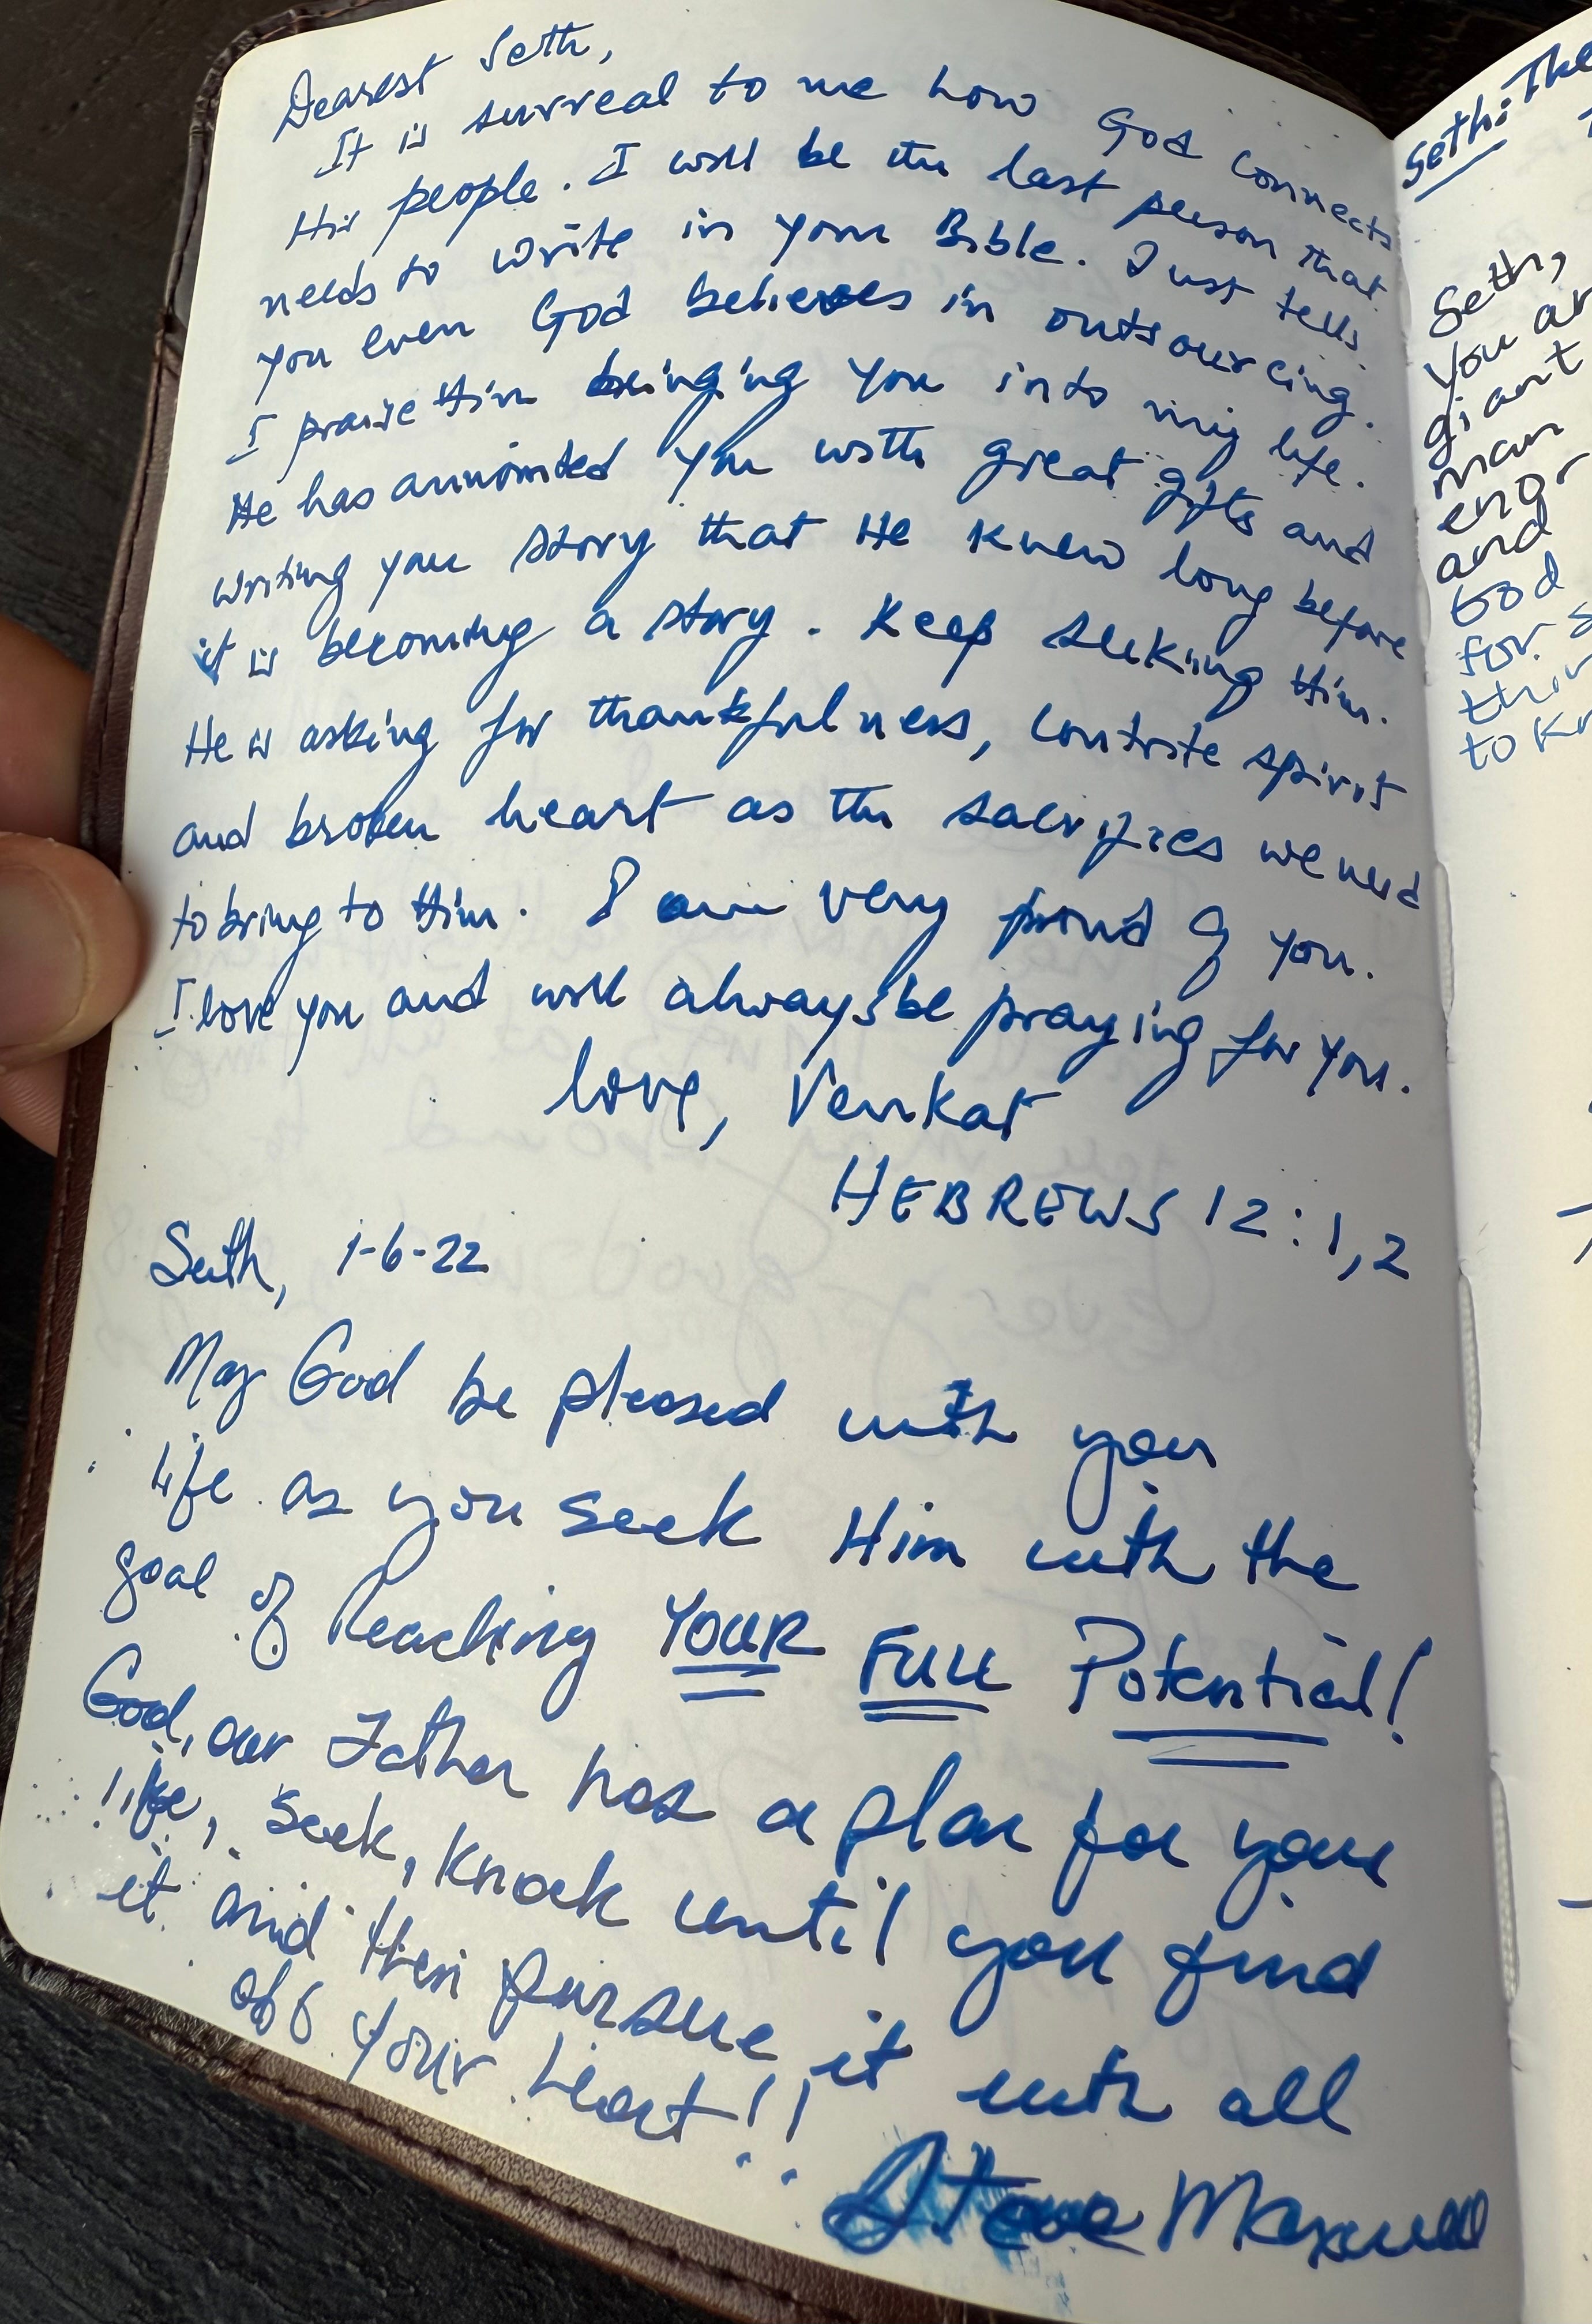 Dearest Seth,
It is surreal to me how God connects
His people. I will be the last person that
needs to write in your Bible. Just tells
you even God believes in outsourcing.
I praise Him bringing you into my life.
He has annointed you with great gifts and
writing your story that He knew long before
it is becoming a story. Keep seeking Him.
He is asking for thankfulness, contrite spirit
and broken heart as the sacrifices we need
to bring to Him. I am very proud of you.
I love you and will always be praying for you.
love, Venkat
HEBREWS 12:1,2
Seth, 1-6-22
May God be pleased with your
life as you seek Him with the
goal of Reaching YOUR FULL Potential!
God, our Father has a plan for your
life, seek, knock until you find
it and then pursue it with all
of your heart!!
Steve Maxwell
Seth: The
Seth,
You ar
giant
man
and
God
for
to kn